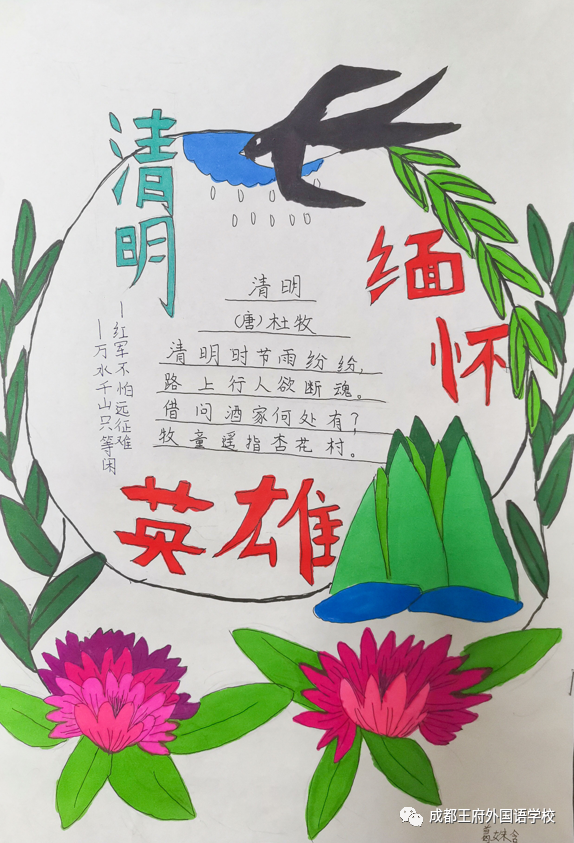 清明
缅怀
英雄
清明
(唐)杜牧
清明时节雨纷纷,
路上行人欲断魂。
借问酒家何处有?
牧童遥指杏花村。
—红军不怕远征难
—万水千山只等闲
成都王府外国语学校